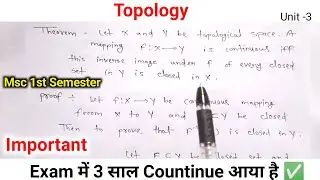 Topology
Unit -3
Theorem - Let X and Y be topological space. A
mapping f: X → Y is continuous iff
this inverse image under f of every closed
set in Y is closed in X.
Msc 1st Semester
proof : Let f: X → Y be continuous mapping
from X to Y and ⊂ Y be closed
Then to prove that is closed in X.
Important
Let F ⊂ Y be closed set and
Exam में 3 साल Countinue आया है ✅